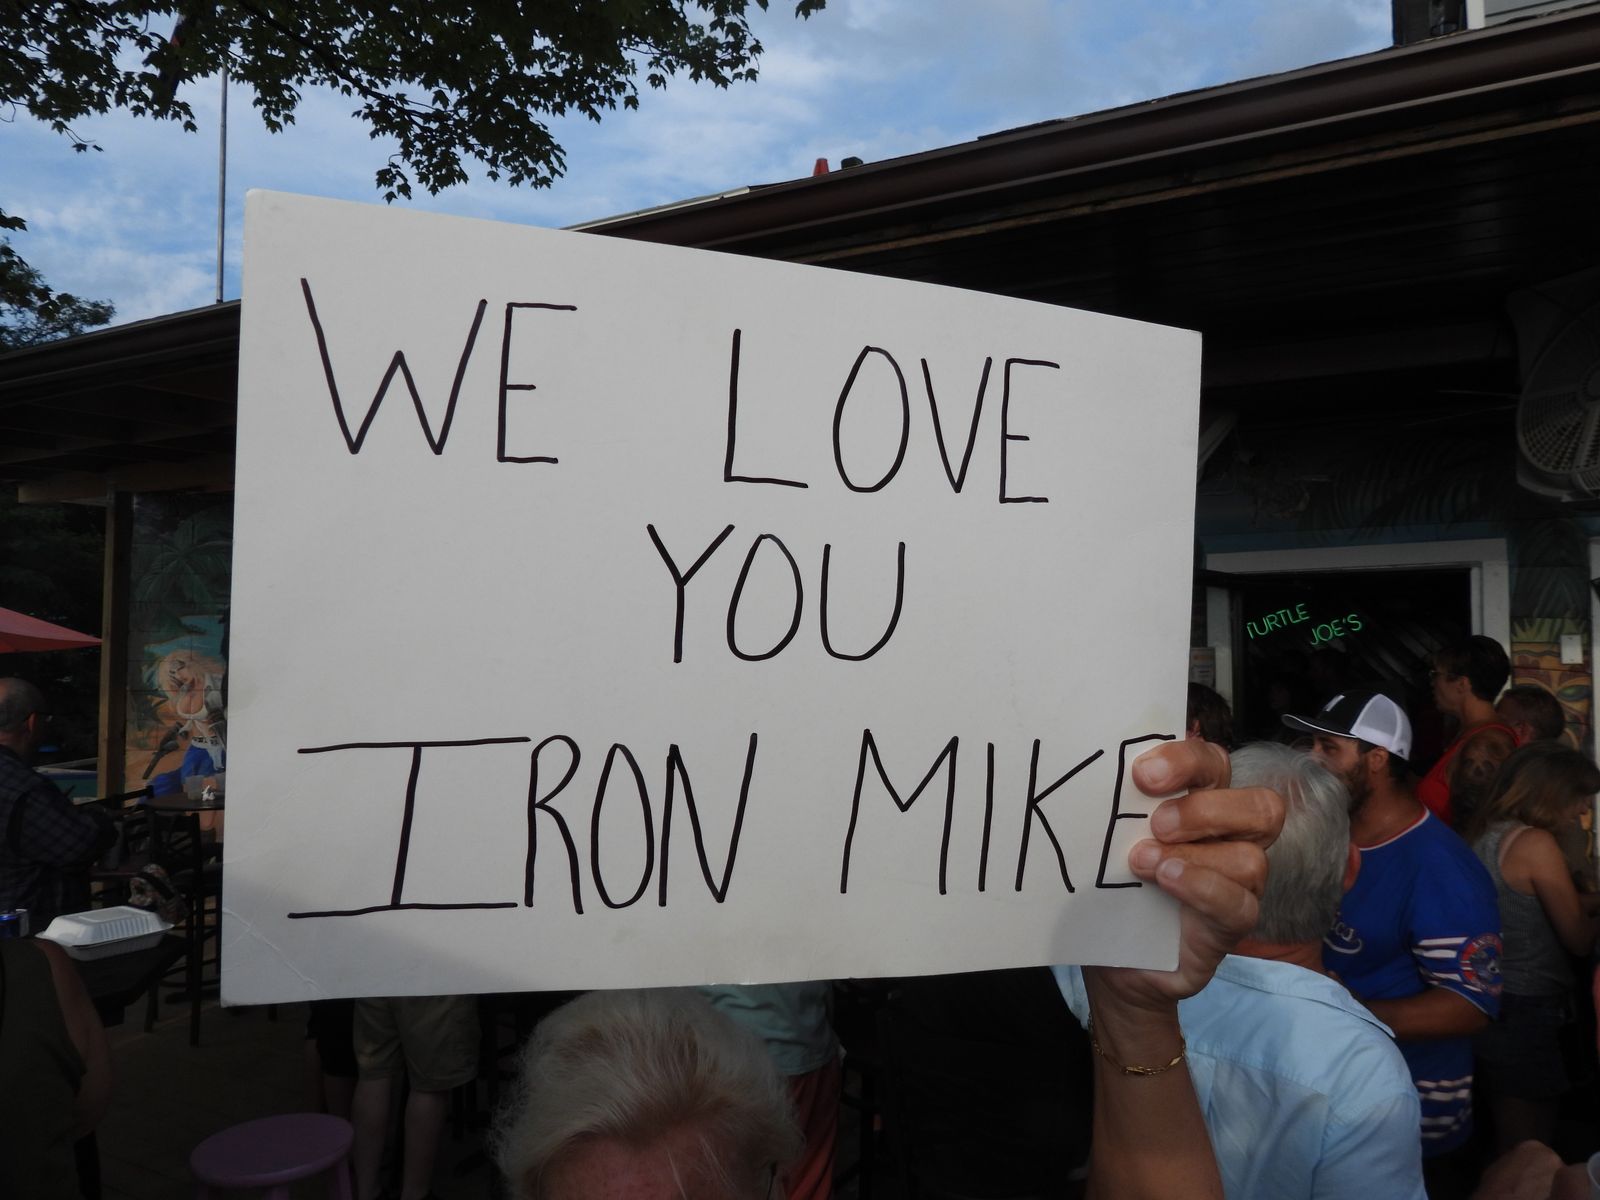 WE LOVE
YOU
IRON MIKE
TURTLE
JOE'S